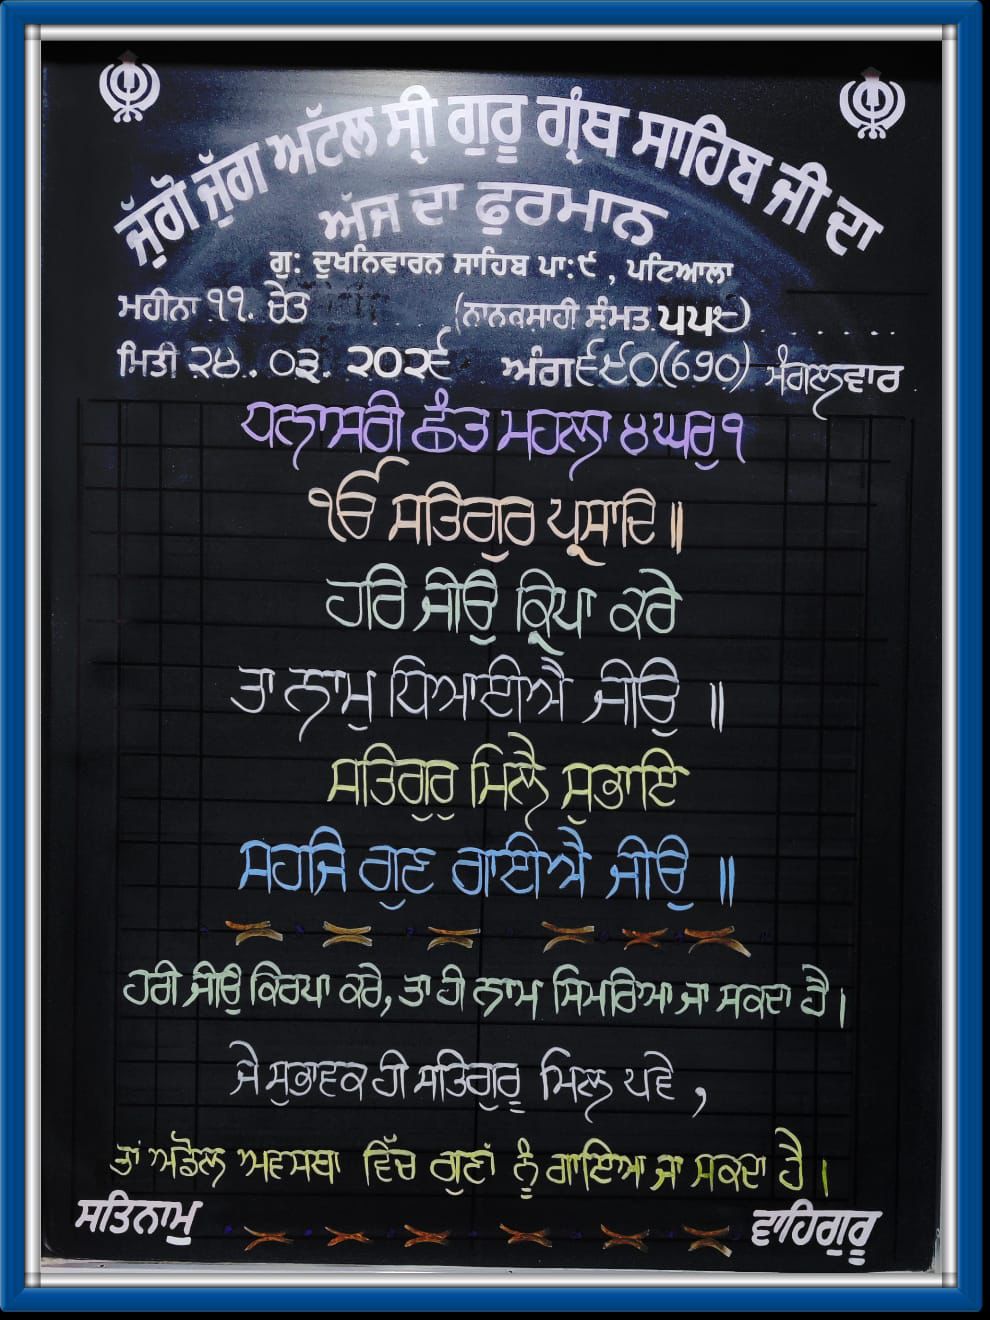 ਜੁੱਗੋ ਜੁੱਗ ਅੱਟਲ ਸ੍ਰੀ ਗੁਰੂ ਗ੍ਰੰਥ ਸਾਹਿਬ ਜੀ ਦਾ
ਅੱਜ ਦਾ ਫੁਰਮਾਨ
ਗੁ: ਦੁਖਨਿਵਾਰਨ ਸਾਹਿਬ ਪਾ:੯ , ਪਟਿਆਲਾ
ਮਹੀਨਾ ੧੧. ਚੇਤ (ਨਾਨਕਸਾਹੀ ਸੰਮਤ ੫੫੮)
ਮਿਤੀ ੨੪. ੦੩. ੨੦੨੬ ਅੰਗ ੬੯੦(690) ਮੰਗਲਵਾਰ
ਧਨਾਸਰੀ ਛੰਤ ਮਹਲਾ ੪ ਘਰੁ ੧
ੴ ਸਤਿਗੁਰ ਪ੍ਰਸਾਦਿ॥
ਹਰਿ ਜੀਉ ਕ੍ਰਿਪਾ ਕਰੇ
ਤਾ ਨਾਮੁ ਧਿਆਈਐ ਜੀਉ ॥
ਸਤਿਗੁਰੁ ਮਿਲੈ ਸੁਭਾਇ
ਸਹਜਿ ਗੁਣ ਗਾਈਐ ਜੀਉ ॥
ਹਰੀ ਜੀਉ ਕਿਰਪਾ ਕਰੇ, ਤਾ ਹੀ ਨਾਮ ਸਿਮਰਿਆ ਜਾ ਸਕਦਾ ਹੈ।
ਜੇ ਸੁਭਾਵਕ ਹੀ ਸਤਿਗੁਰੂ ਮਿਲ ਪਵੇ ,
ਤਾਂ ਅਡੋਲ ਅਵਸਥਾ ਵਿੱਚ ਗੁਣਾਂ ਨੂੰ ਗਾਇਆ ਜਾ ਸਕਦਾ ਹੈ।
ਸਤਿਨਾਮੁ ਵਾਹਿਗੁਰੂ